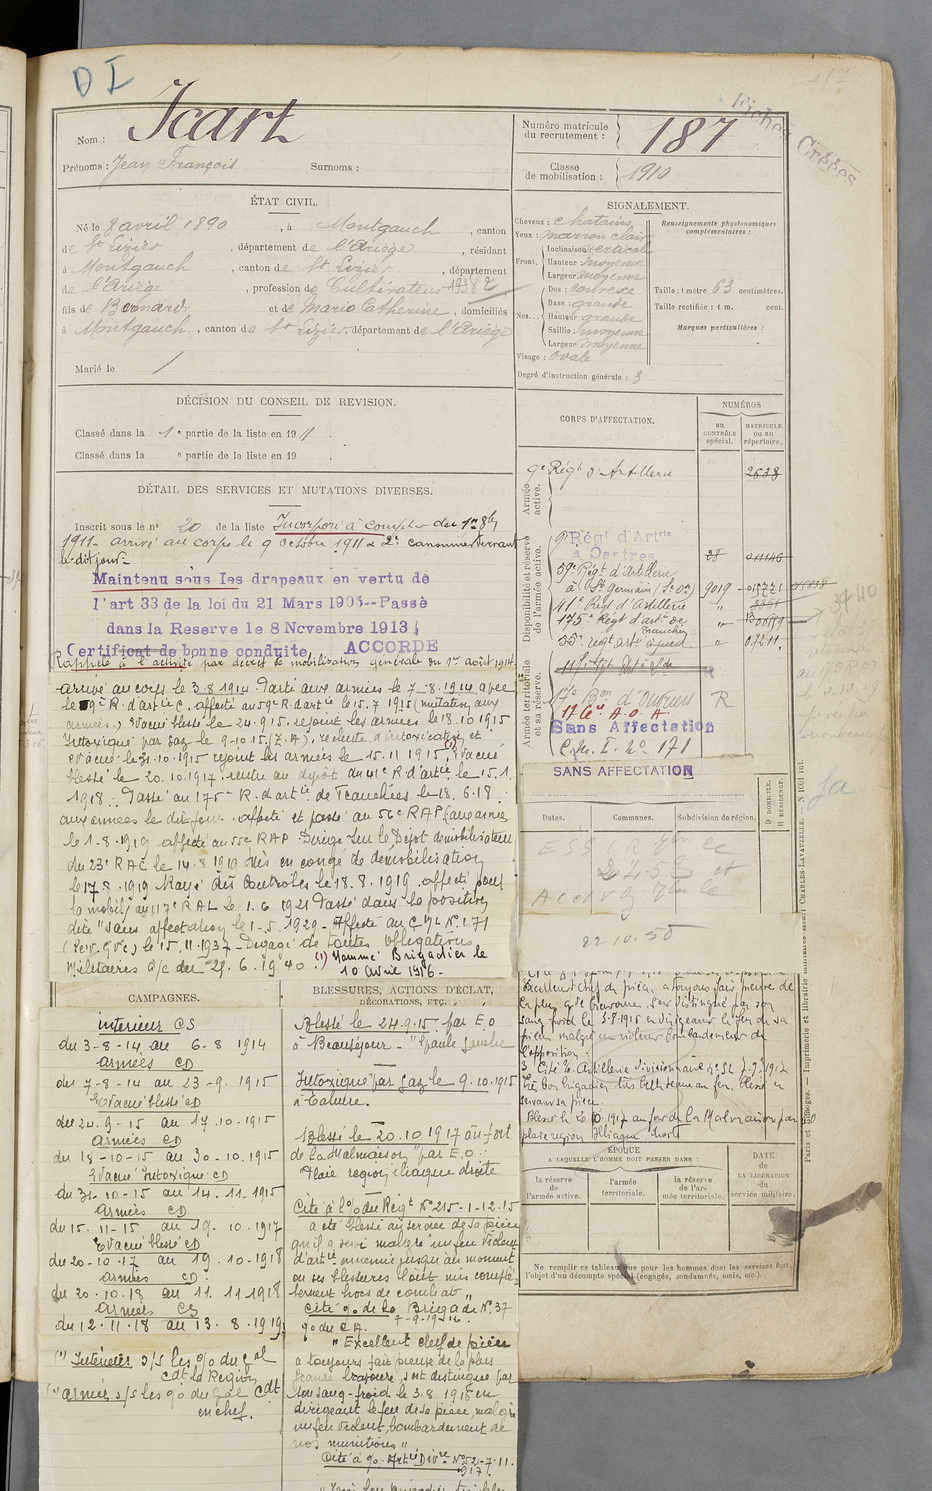 D I
Fiches Créées
Nom : Icart
Prénoms : Jean François Surnoms :
Numéro matricule du recrutement : 187
Classe de mobilisation : 1910
ÉTAT CIVIL.
Né le 8 avril 1890, à Montgauch, canton
de St Lizier, département de l'Ariège, résidant
à Montgauch, canton de St Lizier, département
de l'Ariège, profession de Cultivateur
fils de Bernard et de Marie Catherine, domiciliés
à Montgauch, canton de St Lizier, département de l'Ariège
Marié le /
SIGNALEMENT.
Cheveux : chatains
Yeux : marron clair
Front, Inclinaison : verticale
Hauteur moyenne
Largeur moyenne
Nez... Dos : convexe
Base : grande
Hauteur grande
Saillie : moyenne
Largeur moyenne
Visage : ovale
Renseignements physionomiques complémentaires :
Taille : 1 mètre 63 centimètres.
Taille rectifiée : 1 m. cent.
Marques particulières :
Degré d'instruction générale : 3
DÉCISION DU CONSEIL DE REVISION.
Classé dans la 1e partie de la liste en 1911.
Classé dans la e partie de la liste en 19 .
DÉTAIL DES SERVICES ET MUTATIONS DIVERSES.
Inscrit sous le no 20 de la liste Incorporé à compter du 1er 8bre
1911 arrivé au corps le 9 octobre 1911 & 2e canonnier servant
le dit jour.
Maintenu sous les drapeaux en vertu de
l'art 33 de la loi du 21 Mars 1905--Passé
dans la Reserve le 8 Novembre 1913
Certificat de bonne conduite ACCORDE
Rappelé à l'activité par décret de mobilisation générale du 1er août 1914
arrivé au corps le 3-8-1914. Parti aux armées le 7-8-1914 avec
le 9e R. d'artie C. affecté au 59e R. d'artie le 15.7.1915 (mutation aux
armées) Evacué blessé le 24.9.15 rejoint les armées le 18.10.1915
Intoxiqué par gaz le 9-10.15 (Z.A). rechute d'intoxication et
evacué le 31-10.1915 rejoint les armées le 15.11.1915 (1) Evacué
blessé le 20.10.1917 rentre au dépôt du 41e R. d'artie le 15.1.
1918. Passé au 175e R. d'artie de Tranchées le 18.6.18
aux armées le dit jour. affecté et passé au 56e RAP (aux armées
le 1-8-1919 affecté au 55e RAP Dirigé sur le Dépôt demobilisateur
du 23e RAC le 14.8.1919 mis en congé de demobilisation
le 17.8.1919 Rayé des controles le 18.8.1919. affecté pour
la mobilon au 117e RAL le 1.6.1921 Passé dans la position
dite "sans affectation le 1-5.1929 - Affecté au C.M.I. No 171
le 15.11.1937 - Degagé de toutes obligations
militaires a/c du 29.6.1940. (1) Nommé Brigadier le
10 avril 1916 -
CORPS D'AFFECTATION.
NUMÉROS
au CONTRÔLE spécial.
MATRICULE ou au répertoire.
Armée active.
9e Régt d'Artillerie 2638
Disponibilité et réserve de l'armée active.
9e Régt d'Artrie
à Castres 28 011146
59e Régt d'Artillerie
à St Germain (S. et O.) 9019
41e Régt d'Artillerie "
175e Régt d'artie de Tranchées "
55e regt artie à pied "
Armée territoriale et sa réserve.
117e Régt Art
17e Bon d'ouvriers R
Sans Affectation
C.M.I. No 171
SANS AFFECTATION
Dates. Communes. Subdivision de région. D DOMICILE. R RÉSIDENCE.
22.10.50
CAMPAGNES.
intérieur CS
du 3-8-14 au 6-8 1914
Armées CD
du 7-8-14 au 23-9.1915
Evacué blessé CD
du 24-9-15 au 17.10.1915
Armées CD
du 18-10-15 au 30-10.1915
Evacué Intoxiqué CD
du 31-10-15 au 14.11.1915
Armées CD
du 15.11-15 au 19-10.1917
Evacué blessé CD
du 20-10-17 au 19.10-1918
Armées CD
du 20.10.18 au 11.11.1918
Armées CS
du 12.11.18 au 13.8.1919
(") Intérieur s/s les %o du Gal
cdt la Région
(") armées s/s les %o du Gal Cdt
en chef.
BLESSURES, ACTIONS D'ÉCLAT,
DÉCORATIONS, ETC.
Blessé le 24.9.15 par E.O
à Beauséjour - "Epaule gauche
Intoxiqué par gaz le 9.10.1915
à Tahure.
Blessé le 20.10.1917 au fort
de la Malmaison "par E.O.
Plaie region iliaque droite
Cité à l'%o du Régt No 215-1-12.15
a été blessé au service de sa pièce
qu'il a servi malgré un feu violent
d'artie ennemie jusqu'au moment
où ses blessures l'ont mis complè-
tement hors de combat "
Cité %o de la Brigade No 37
%o du CA.
" Excellent chef de pièce
a toujours fait preuve de la plus
grande bravoure, s'est distingué par
son sang-froid le 3.8.1916 en
dirigeant le feu de sa pièce, malgré
un feu violent, bombardement de
nos munitions "
Cité à %o. Artie Divre No 52-7.11.
1917
Excellent chef de pièce, a toujours fait preuve de
la plus gde bravoure. S'est distingué par son
sang froid le 3-8-1916 en dirigeant le feu de sa
pièce malgré un violent bombardement de
l'opposition.
3e Cité %o Artillerie Divisionnaire
Très bon brigadier très belle tenue au feu, blessé en
servant sa pièce.
Blessé le 20.10.1917 au fort de la Malmaison par EO
plaie region Illiaque droite
ÉPOQUE
A LAQUELLE L'HOMME DOIT PASSER DANS :
la réserve de l'armée active.
l'armée territoriale.
la réserve de l'armée territoriale.
DATE DE LA LIBÉRATION du service militaire.
Ne remplir ce tableau que pour les hommes dont les services font
l'objet d'un décompte spécial (engagés, condamnés, omis, etc.).
Paris et Limoges. — Imprimerie et librairie militaires Henri CHARLES-LAVAUZELLE. — N. 1001 int.